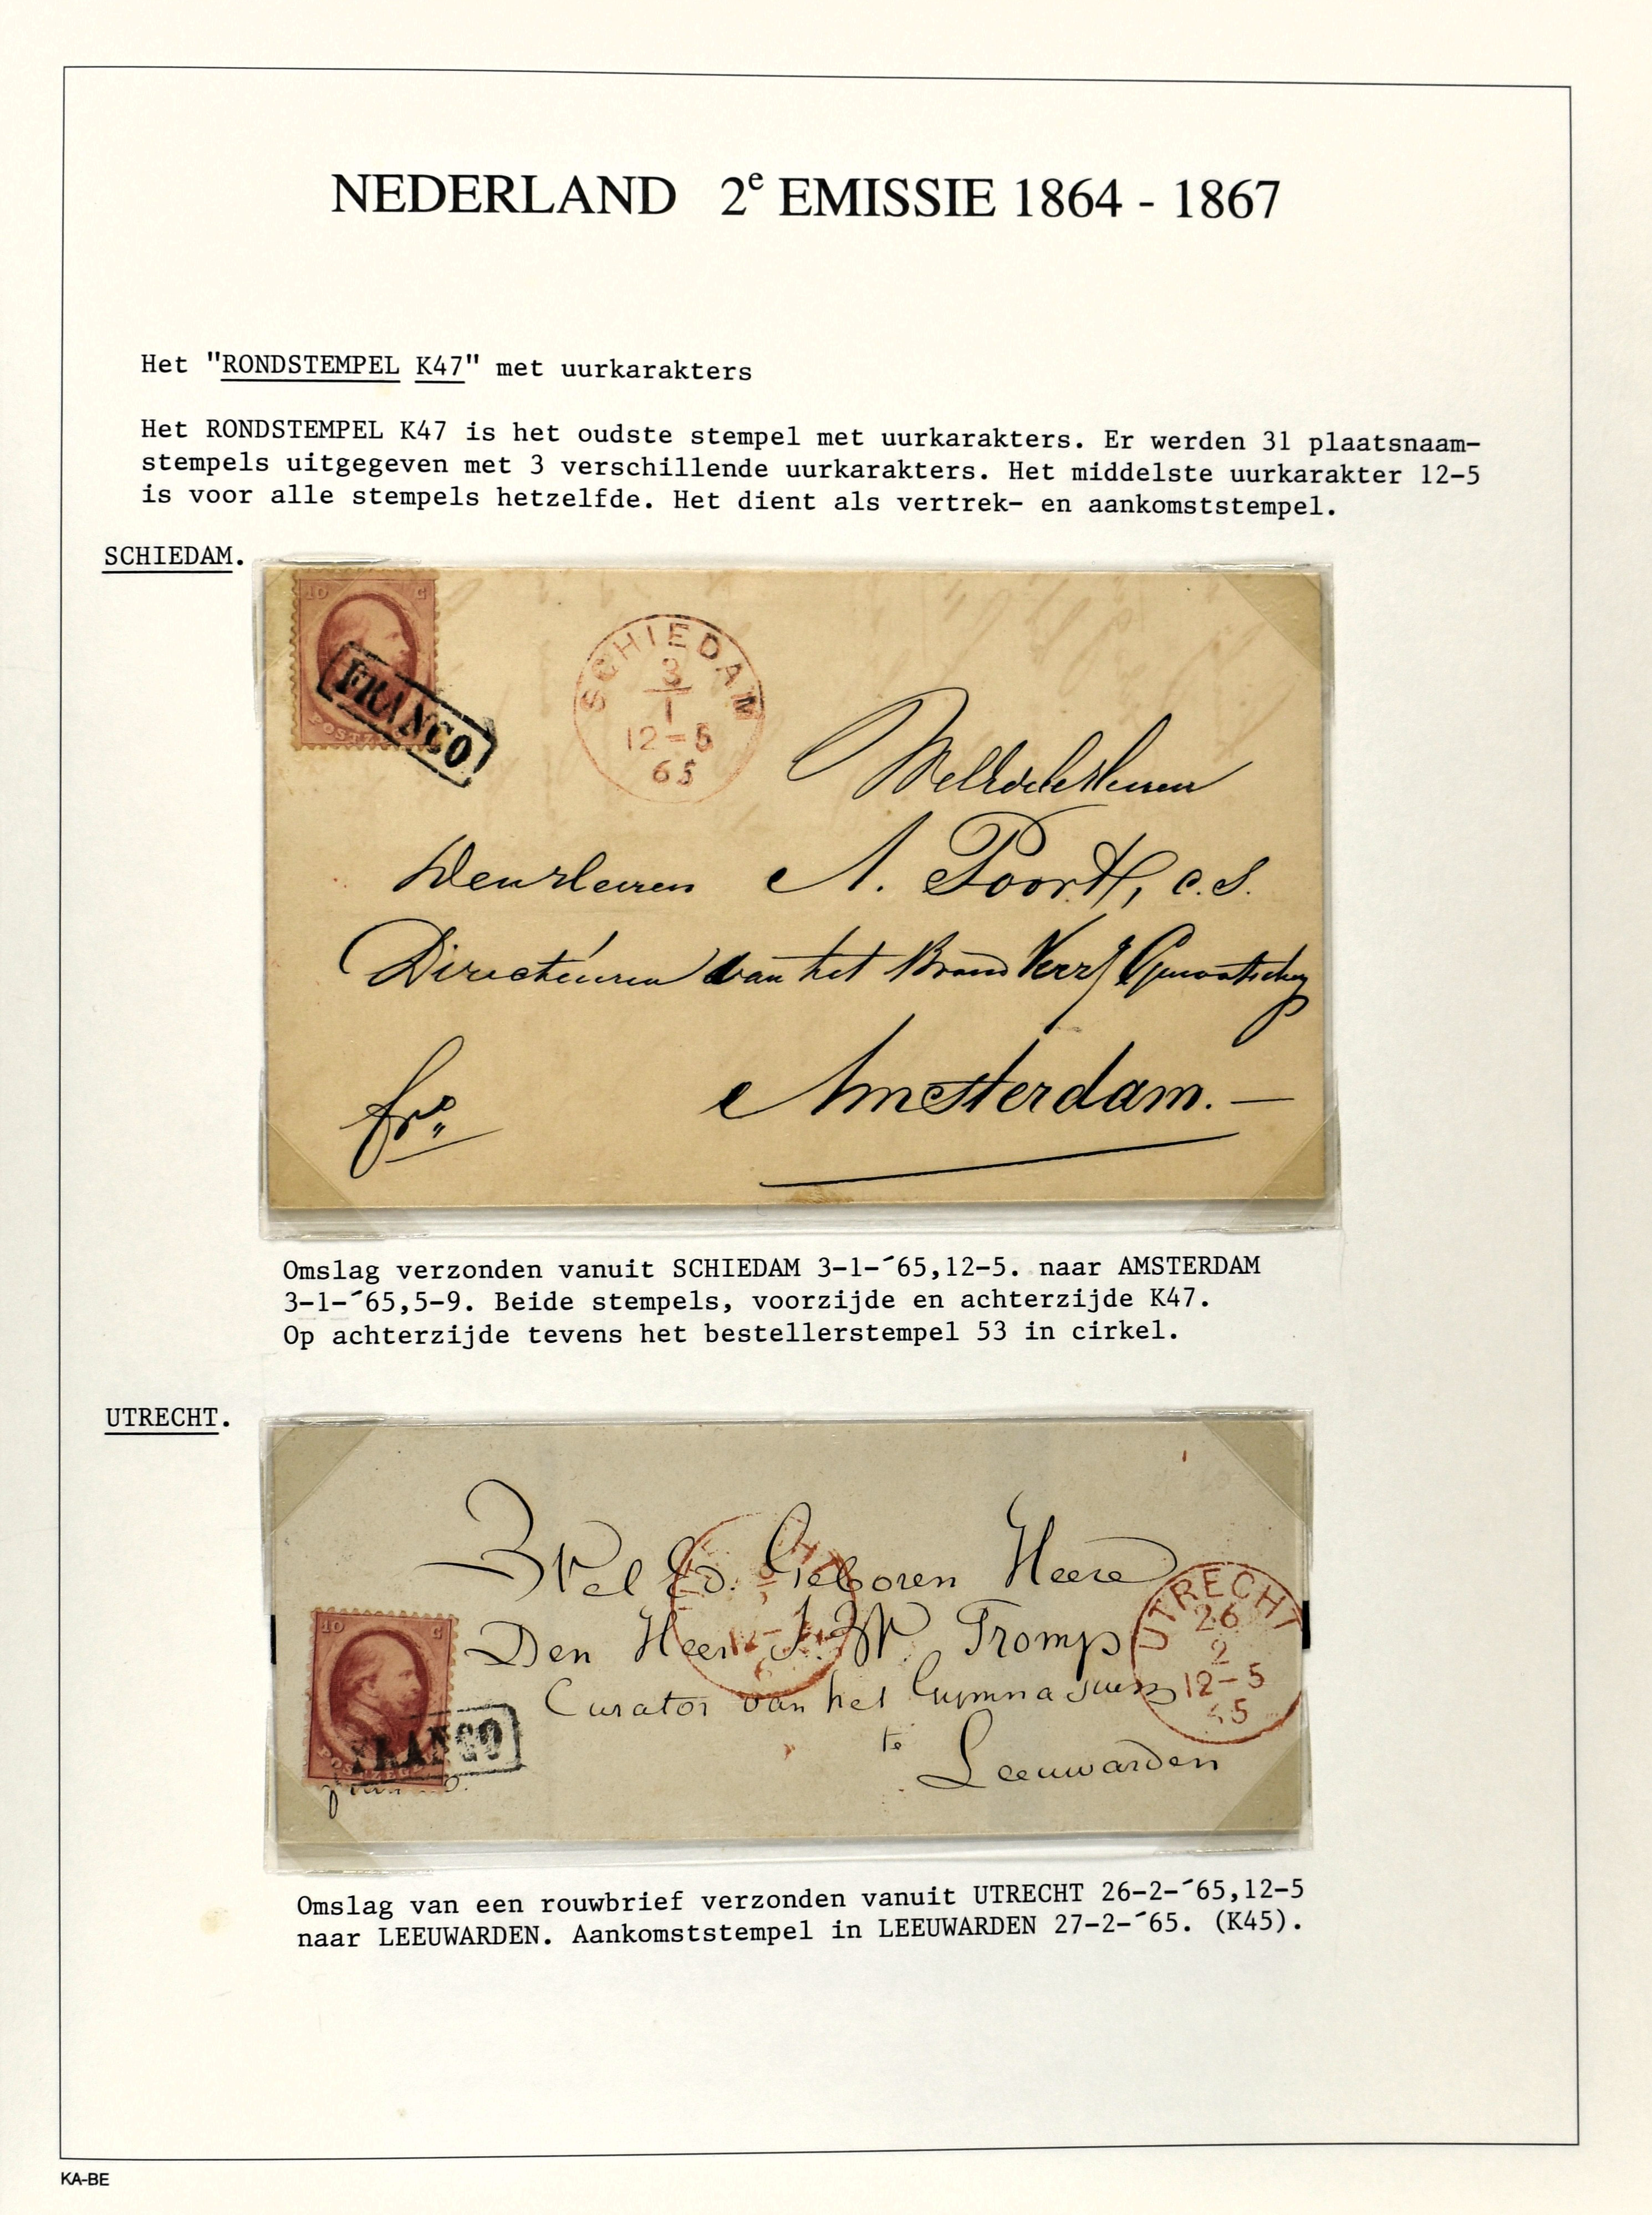 NEDERLAND 2e EMISSIE 1864 - 1867
Het "RONDSTEMPEL K47" met uurkarakters
Het RONDSTEMPEL K47 is het oudste stempel met uurkarakters. Er werden 31 plaatsnaam-
stempels uitgegeven met 3 verschillende uurkarakters. Het middelste uurkarakter 12-5
is voor alle stempels hetzelfde. Het dient als vertrek- en aankomststempel.
SCHIEDAM.
10 C
POSTZE
FRANCO
SCHIEDAM
3
1
12-5
65
A. Poort, c.s.
Directeuren van het Brand
fro
Amsterdam. —
Omslag verzonden vanuit SCHIEDAM 3-1-´65,12-5. naar AMSTERDAM
3-1-´65,5-9. Beide stempels, voorzijde en achterzijde K47.
Op achterzijde tevens het bestellerstempel 53 in cirkel.
UTRECHT.
Wel Ed. Geboren Heere
Den Heer J. W. Tromp
Curator van het Gymnasium
te
Leeuwarden
UTRECHT
26
2
12-5
65
10 C
POSTZEG
FRANCO
Omslag van een rouwbrief verzonden vanuit UTRECHT 26-2-´65,12-5
naar LEEUWARDEN. Aankomststempel in LEEUWARDEN 27-2-´65. (K45).
KA-BE